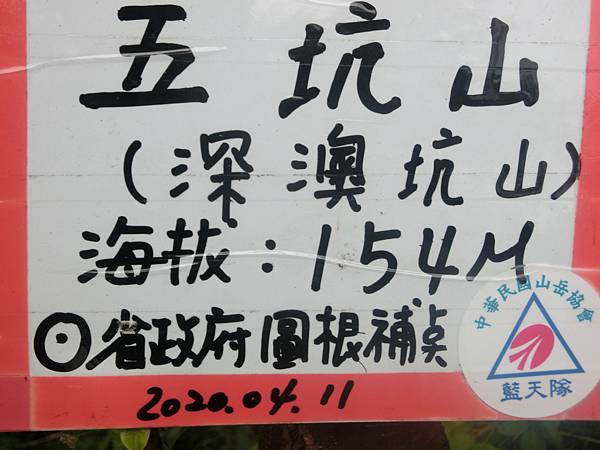 五坑山
(深澳坑山)
海拔：154M
⊙省政府圖根補点
2020.04.11
中華民國山岳協會
藍天隊